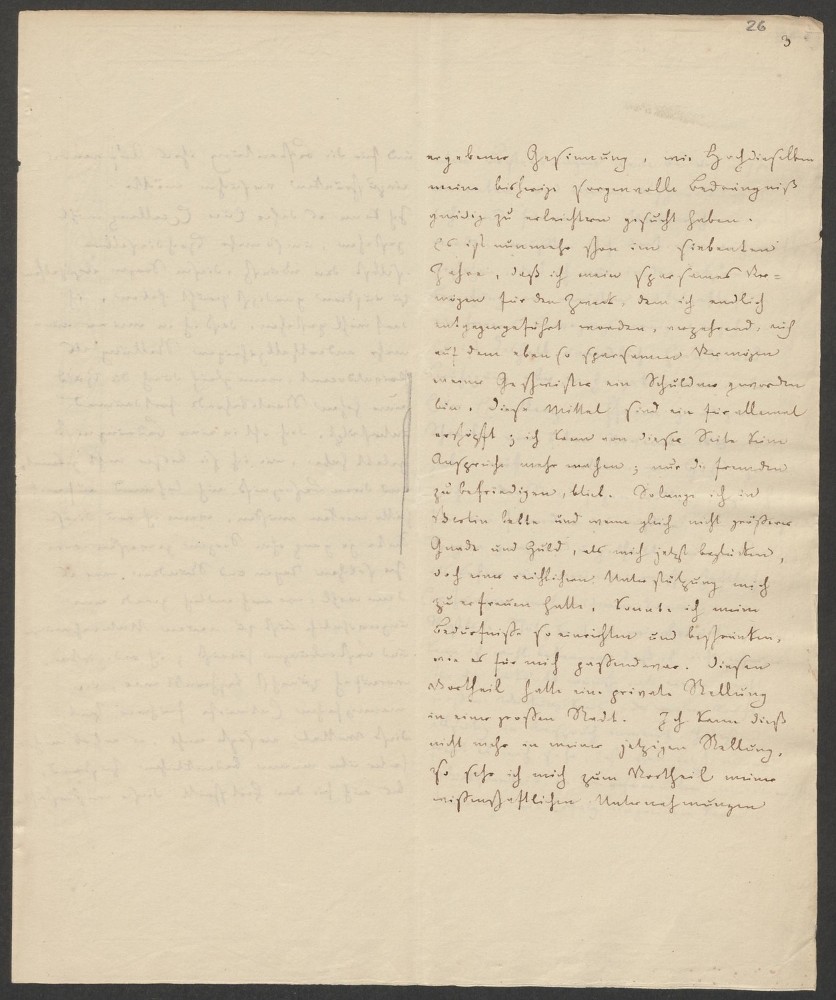 26
3
ergebener Gesinnung, wie Hochdieselben
meine bisherige sorgenvolle Bedrängniß
gnädig zu erleichtern gesucht haben.
Es ist nunmehr schon im siebenten
Jahre, daß ich mein sparsames Ver=
mögen für den Zweck, dem ich endlich
entgegengeführt worden, verzehrend, auch
auf dem eben so sparsamen Vermögen
meiner Geschwister ein Schuldner geworden
bin. Diese Mittel sind ein für allemal
erschöpft; ich kann von dieser Seite keine
Ansprüche mehr machen; nur die fremden
zu befriedigen, blieb. Solange ich in
Berlin lebte und wenn gleich nicht größerer
Gnade und Huld, als mich jetzt beglücken,
doch einer reichlichen Unterstützung mich
zu erfreuen hatte, konnte ich meine
Bedürfnisse so einrichten und beschränken,
wie es für mich passend war. Diesen
Vortheil hatte eine private Stellung
in einer großen Stadt. Ich kann dieß
nicht mehr in meiner jetzigen Stellung,
so sehr ich mich zum Vortheil meiner
wissenschaftlichen Unternehmungen